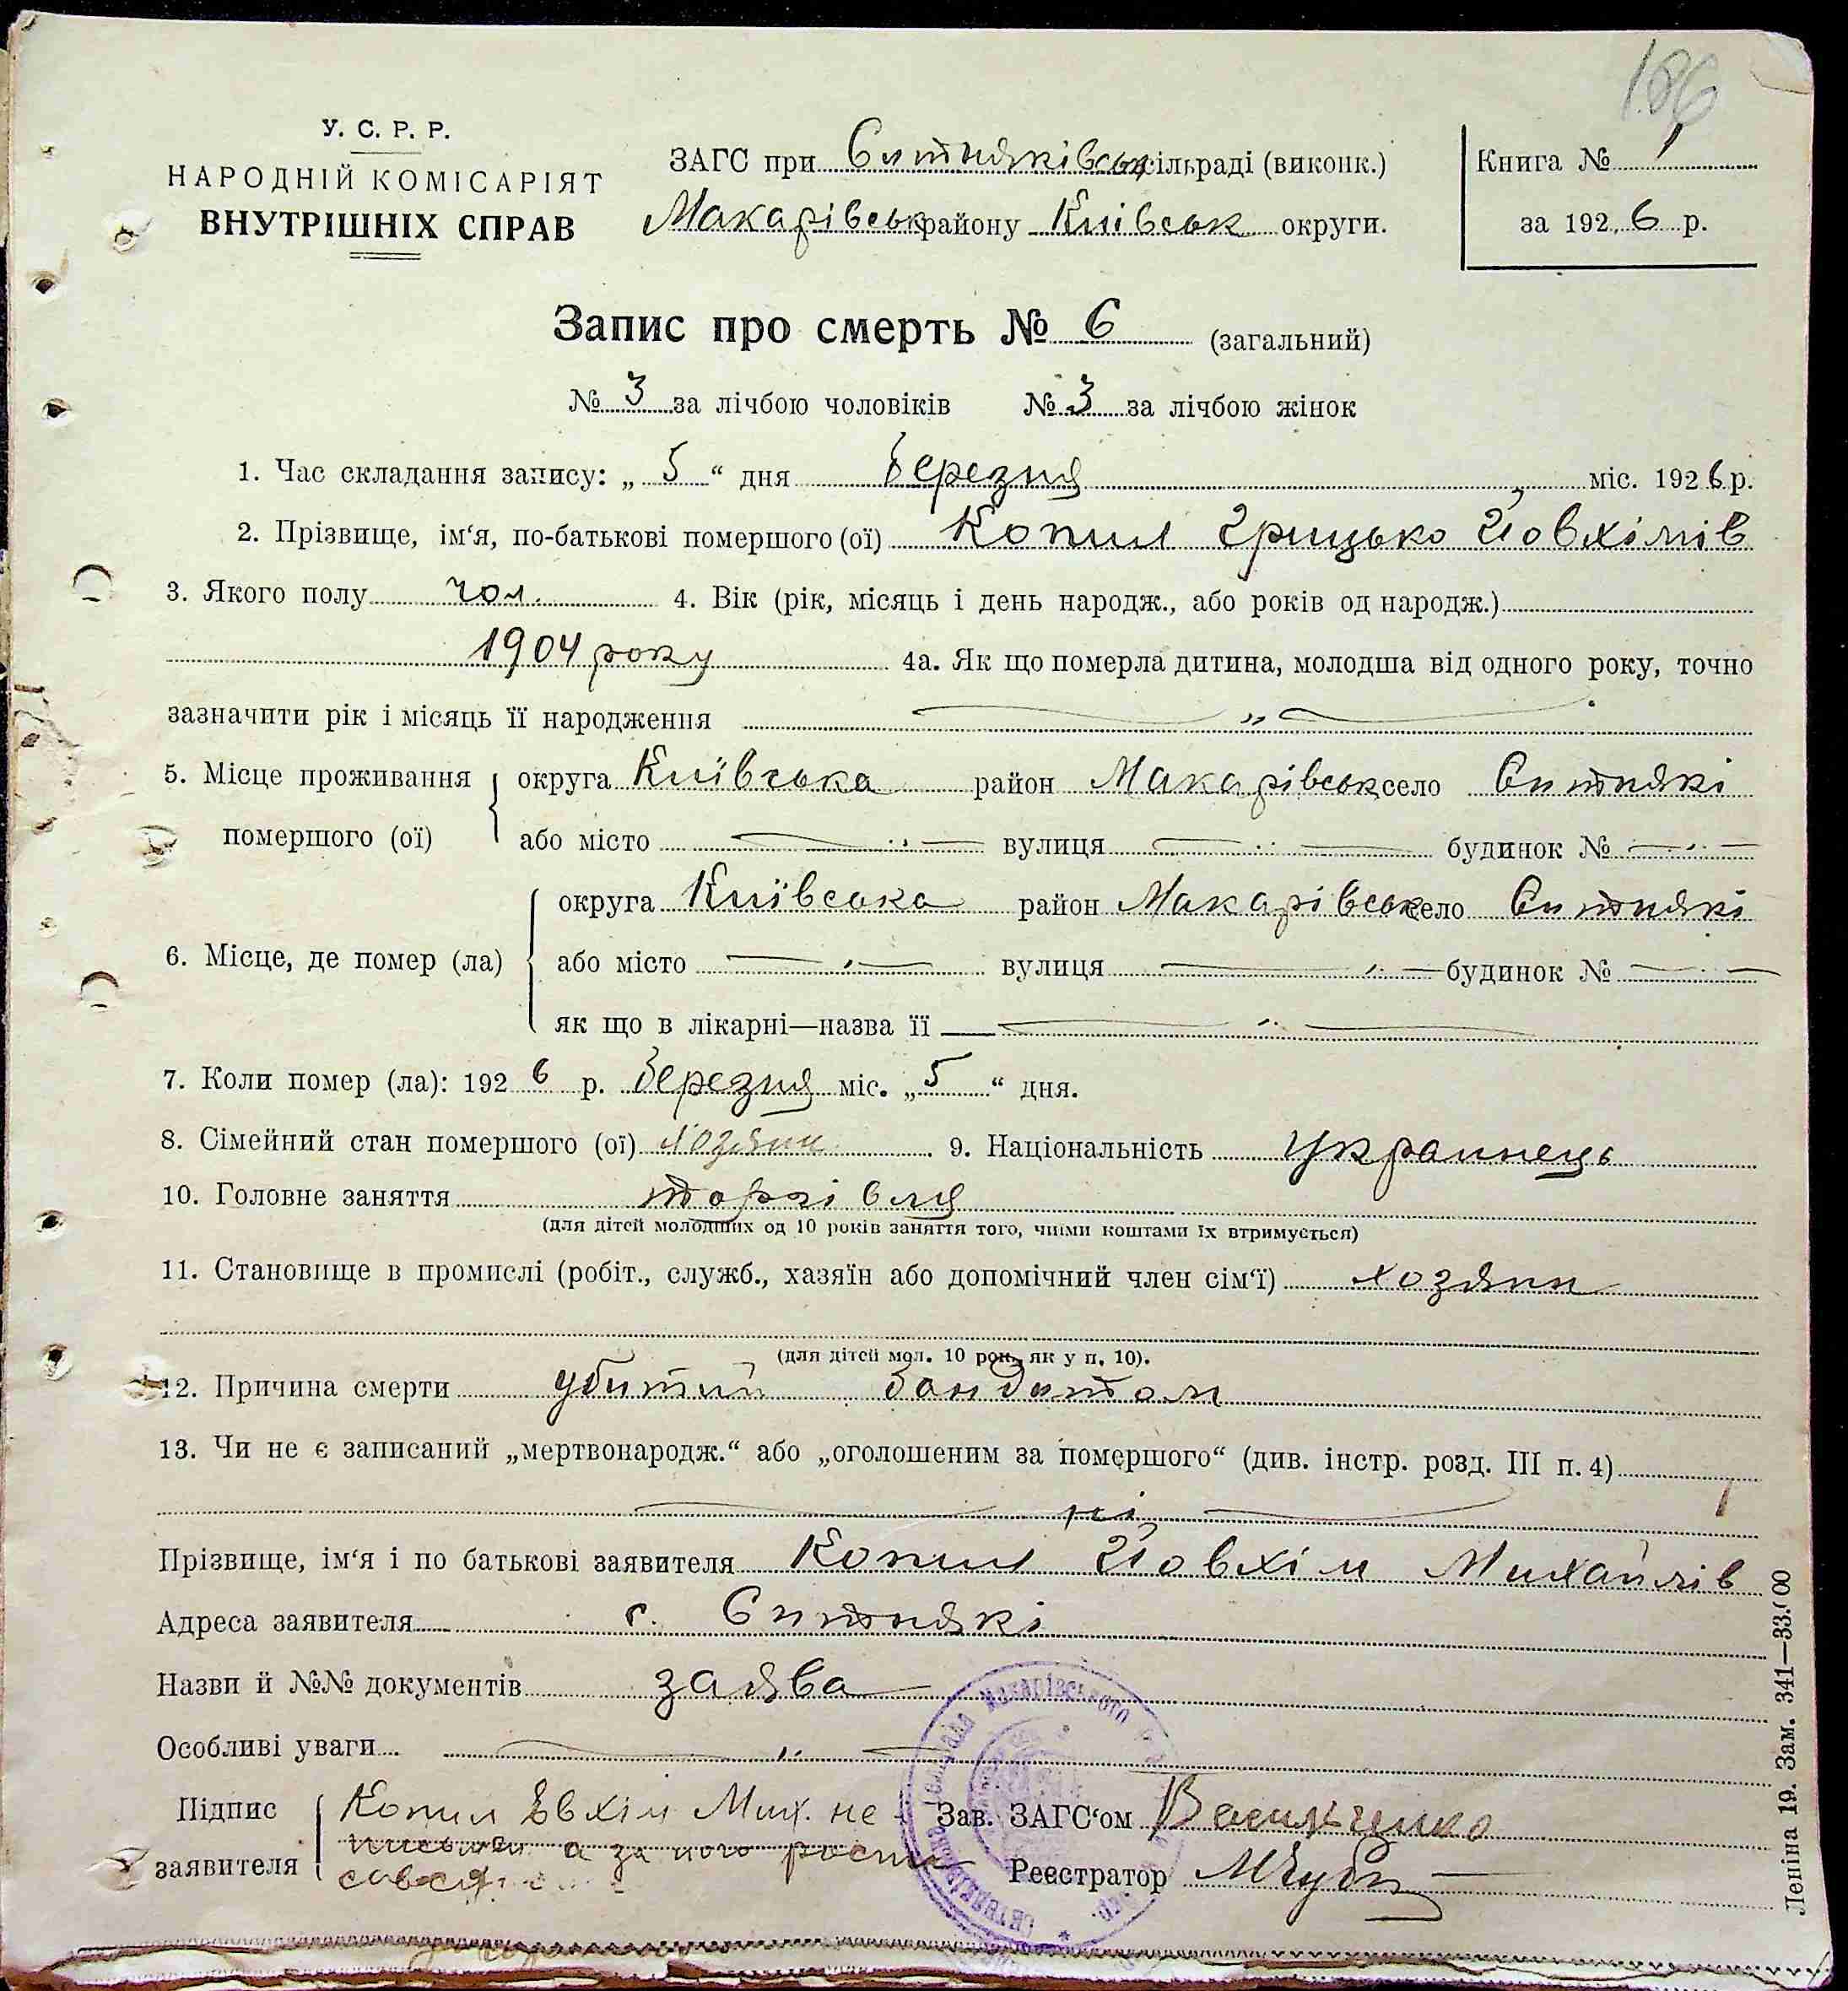 186
У. С. Р. Р.
НАРОДНІЙ КОМІСАРІЯТ
ВНУТРІШНІХ СПРАВ
ЗАГС при Ситняківськ сільраді (виконк.)
Макарівськ району Київськ округи.
Книга № 1
за 1926 р.
Запис про смерть № 6 (загальний)
№ 3 за лічбою чоловіків № 3 за лічбою жінок
1. Час складання запису: „ 5 “ дня березня міс. 1926 р.
2. Прізвище, ім‘я, по-батькові помершого (ої) Копил Грицько Йовхімів
3. Якого полу чол. 4. Вік (рік, місяць і день народж., або років од народж.)
1904 року 4а. Як що померла дитина, молодша від одного року, точно
зазначити рік і місяць її народження „
5. Місце проживання помершого (ої) округа Київська район Макарівськ село Ситнякі
або місто вулиця будинок №
6. Місце, де помер (ла) округа Київська район Макарівськ село Ситнякі
або місто вулиця будинок №
як що в лікарні—назва її
7. Коли помер (ла): 1926 р. березня міс. „ 5 “ дня.
8. Сімейний стан помершого (ої) хозяин 9. Національність Українець
10. Головне заняття торгівля
(для дітей молодших од 10 років заняття того, чиїми коштами їх втримується)
11. Становище в промислі (робіт., служб., хазяїн або допомічний член сім‘ї) хозяин
(для дітей мол. 10 рок., як у п. 10).
12. Причина смерти убитий бандитом
13. Чи не є записаний „мертвонародж.“ або „оголошеним за помершого“ (див. інстр. розд. III п. 4)
ні
Прізвище, ім‘я і по батькові заявителя Копил Йовхім Михайлів
Адреса заявителя с. Ситнякі
Назви й №№ документів заява
Особливі уваги
Підпис заявителя Копил Евхім Мих. не
а за його
Зав. ЗАГС‘ом Васильченко
Реєстратор
Макарівського
Леніна 19. Зам. 341—33.000